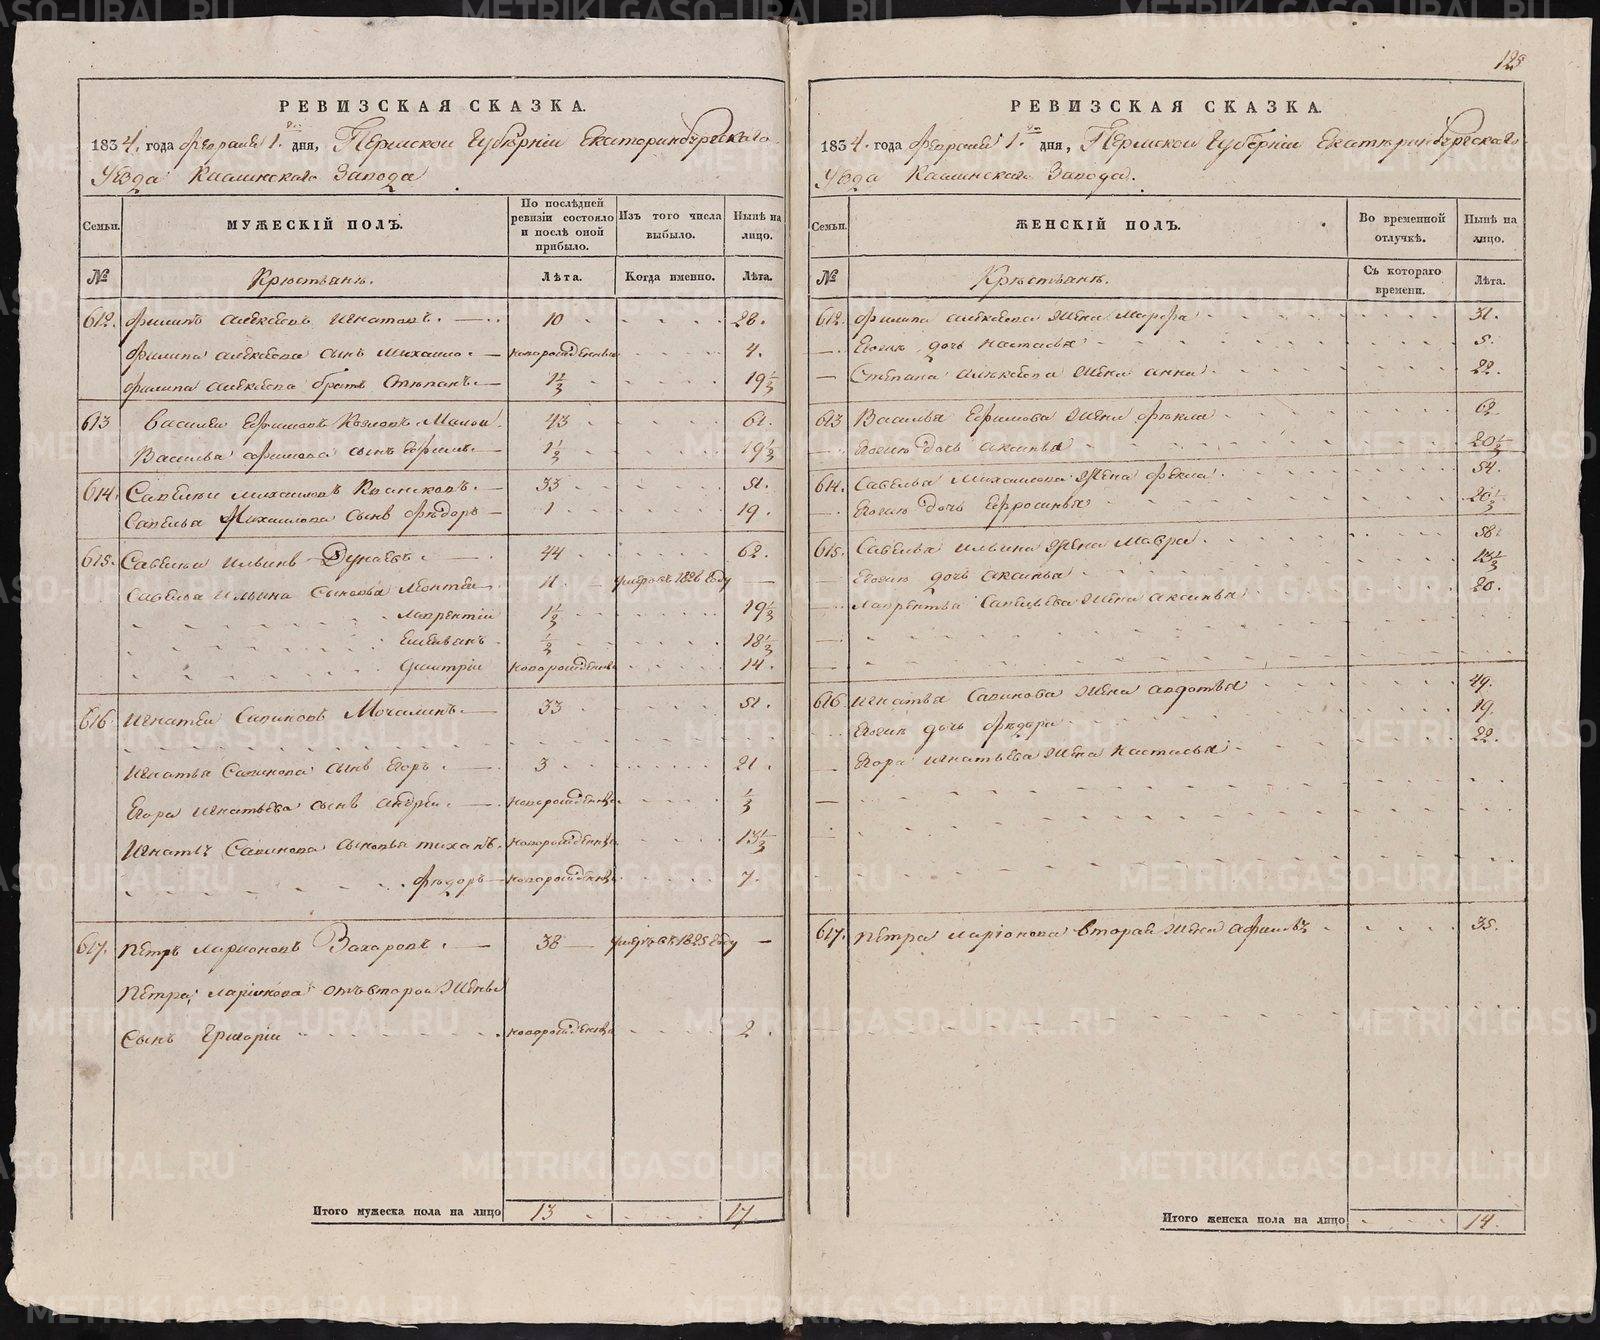 125
РЕВИЗСКАЯ СКАЗКА.
1834. года Февраля 1. дня, Пермской Губерніи Екатеринбургскаго
Уѣзда Каслинскаго Завода
Семьи. МУЖЕСКІЙ ПОЛЪ. По послѣдней ревизіи состояло и послѣ оной прибыло. Изъ того числа выбыло. Нынѣ на лицо.
№ Крестьянъ. Лѣта. Когда именно. Лѣта.
612. Филипъ Алексѣевъ Игнатовъ. 10 28.
Филипа Алексѣева сынъ Михаило. новорожденный 4.
Филипа Алексѣева братъ Степанъ. 1 1/2 19 1/2
613 Василей Ефимовъ Козловъ Малой. 43 61.
Василья Ефимова сынъ Ефимъ. 1 1/2 19 1/2
614. Савелей Михаиловъ 33 51.
Савелья Михаилова сынъ Федоръ 1 19.
615. Савелей Ильинъ Дунаевъ. 44 62.
Савелья Ильина сыновья Ментей 11. умеръ въ 1826 году
Лаврентій 1 1/2 19 1/2
Емельянъ 1/2 18 1/2
Дмитрій новорожденный 14.
616 Игнатей Савиновъ Мочалинъ. 33 51.
Игнатья Савинова сынъ Егоръ. 3 21.
Егора Игнатьева сынъ Андрей. новорожденный 1/2
Игнатья Савинова сыновья Тиханъ. новорожденный 13 1/2
Федоръ новорожденный 7.
617. Петръ Ларионовъ Захаровъ. 38 умеръ въ 1825 году
Петра Ларіонова отъ второй жены
сынъ Григорій новорожденный 2.
Итого мужеска пола на лицо 13 17
РЕВИЗСКАЯ СКАЗКА.
1834. года Февраля 1. дня, Пермской Губерніи Екатеринбургскаго
Уѣзда Каслинскаго Завода.
Семьи. ЖЕНСКІЙ ПОЛЪ. Во временной отлучкѣ. Нынѣ на лицо.
№ Крестьянъ. Съ котораго времени. Лѣта.
612. Филипа Алексѣева жена Марфа 31.
Ево же дочь Настасья 5.
Степана Алексѣева жена Анна 22.
613 Василья Ефимова жена Фекла 62
Ево же дочь Аксинья 20 1/2
614. Савелья Михаилова жена Фекла 54.
Ево же дочь Ефросинья 20 1/2
615. Савелья Ильина жена Мавра. 58.
Ево же дочь Аксинья 13 1/2
Лаврентья Савельева жена Аксинья 20.
616 Игнатья Савинова жена Авдотья 49.
Ево же дочь Федора 19.
Егора Игнатьева жена Настасья 22.
617. Петра Ларіонова вторая жена 35.
Итого женска пола на лицо 14.
METRIKI.GASO-URAL.RU